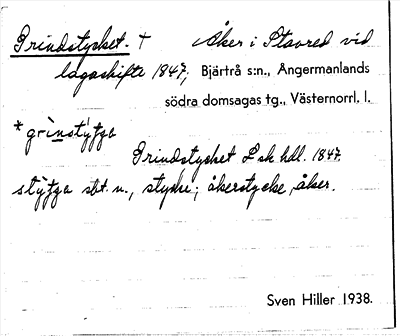 Grindstycket. † Åker i Stavred vid
lagaskifte 1847; Bjärtrå s:n., Ångermanlands
södra domsagas tg., Västernorrl. l.
* grìnstýtʒa
Grindstycket L sk hdl. 1847.
stýtʒa sbt. n., stycke; åkerstycke, åker.
Sven Hiller 1938.